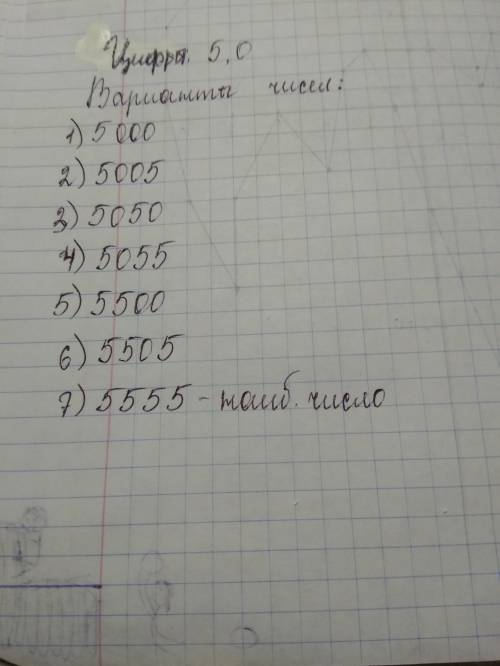 Цифры. 5,0
Варианты чисел:
1) 5000
2) 5005
3) 5050
4) 5055
5) 5500
6) 5505
7) 5555 - наиб. число